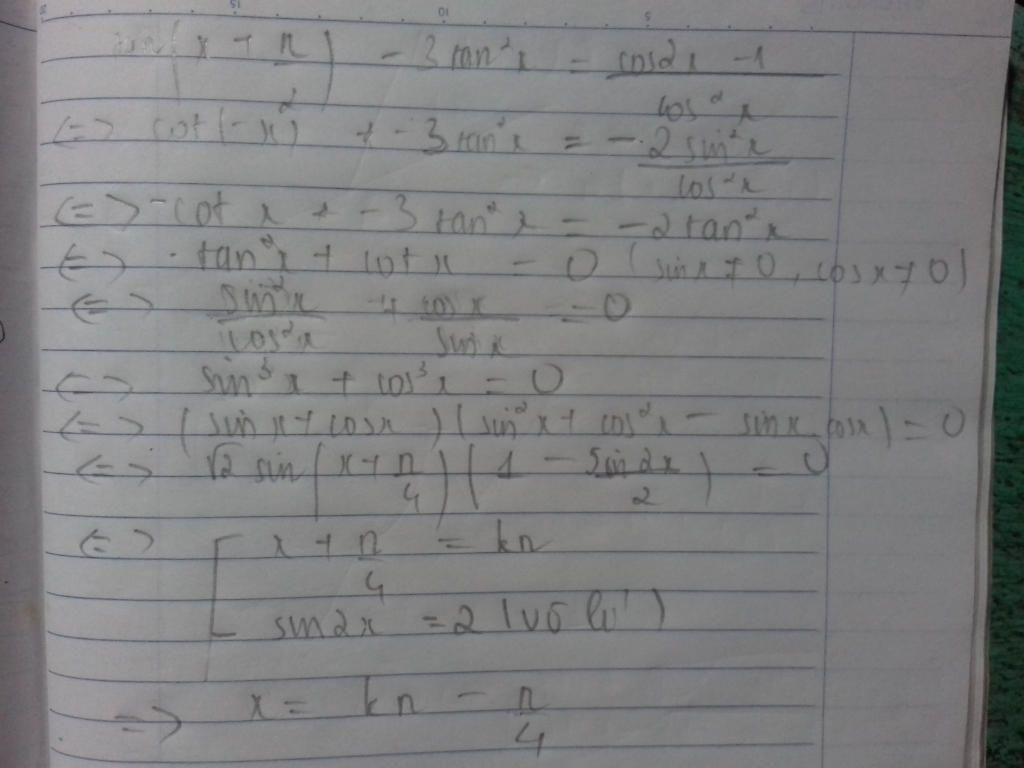 tan(x + π/2) - 3tan²x = (cos2x - 1)/cos²x
<=> cot(-x) + - 3tan²x = -2sin²x/cos²x
<=> -cot x + - 3tan²x = -2tan²x
<=> tan²x + cotx = 0 (sinx ≠ 0, cosx ≠ 0)
<=> sin²x/cos²x + cosx/sinx = 0
<=> sin³x + cos³x = 0
<=> (sinx + cosx)(sin²x + cos²x - sinx cosx) = 0
<=> √2 sin(x + π/4)(1 - sin2x/2) = 0
<=> [ x + π/4 = kπ
sin2x = 2 (vô lí)
=> x = kπ - π/4